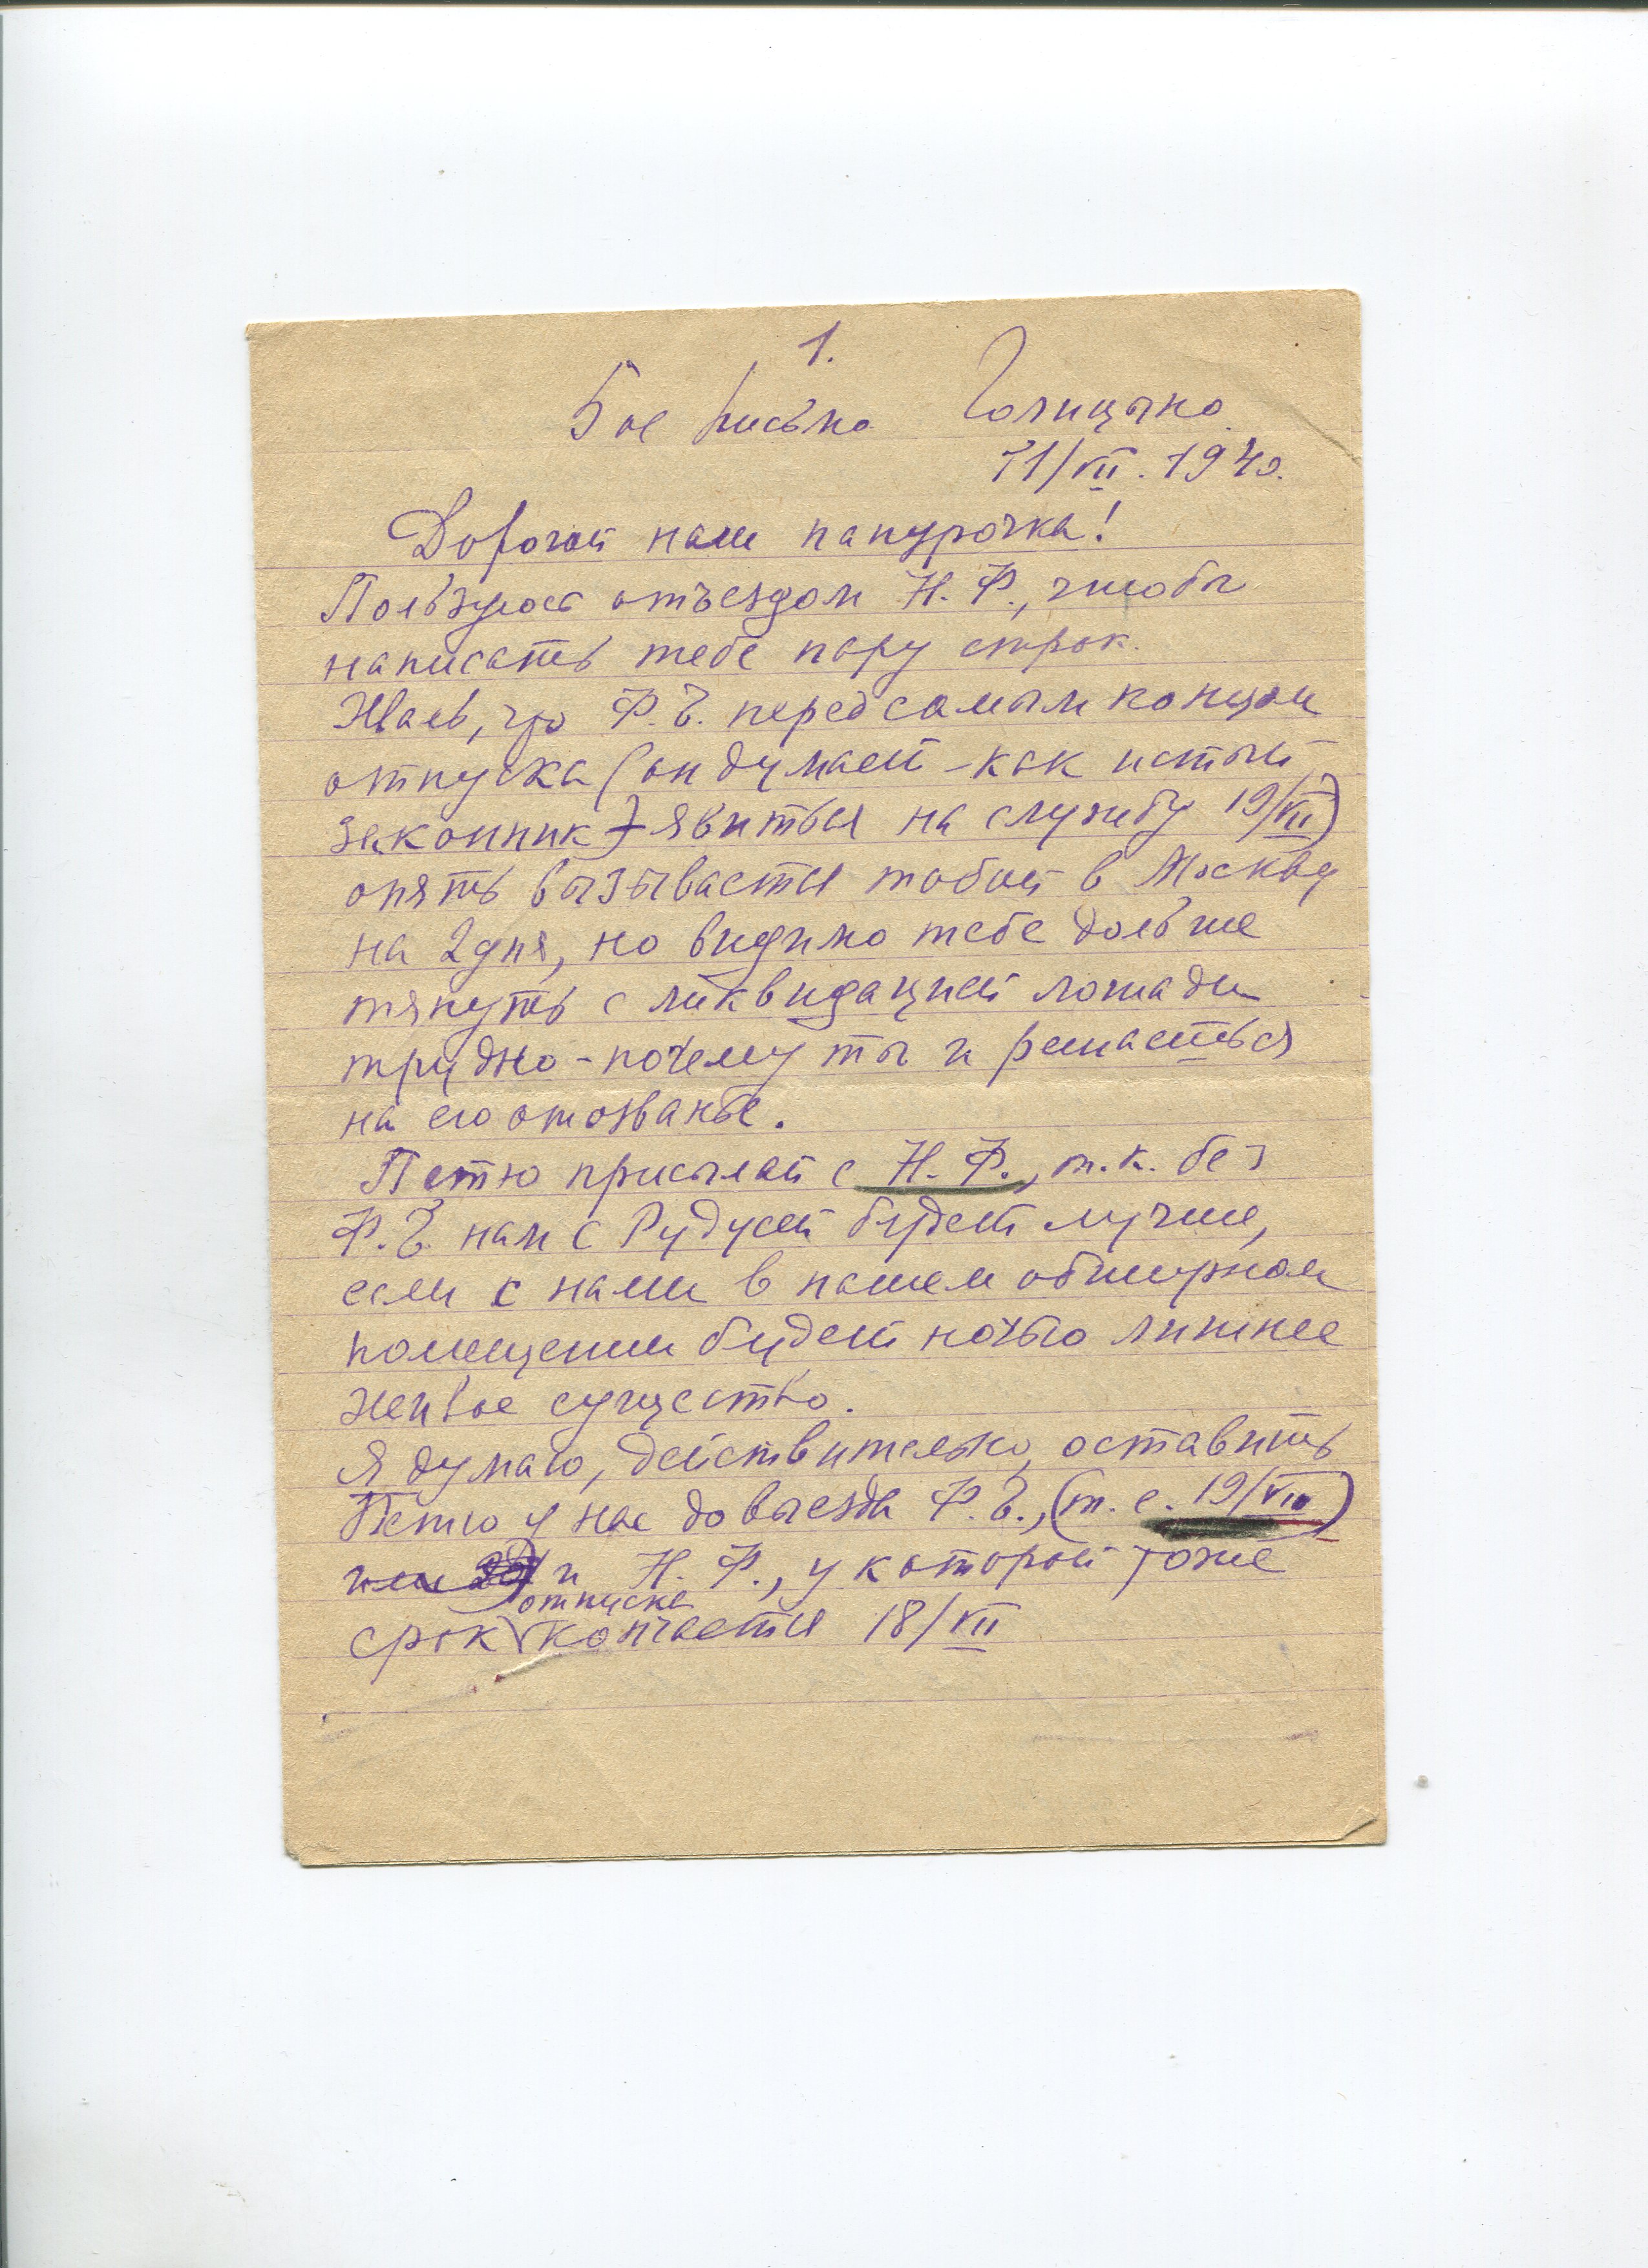 1.
5ое письмо Голицыно
11/VII. 1940.
Дорогой наш папурочка!
Пользуюсь отъездом Н. Ф., чтобы
написать тебе пару строк.
Жаль, что Ф. Э. перед самым концом
отпуска (он думает - как истый
законник) явиться на службу 19/VII)
опять вызывается тобой в Москву
на 2 дня, но видимо тебе дольше
тянуть с ликвидацией лошади
трудно - почему ты и решаешься
на его отозванье.
Петю присылай с Н. Ф., т. к. без
Ф. Э. нам с Рудусей будет лучше,
если с нами в нашем обширном
помещении будет ночью лишнее
живое существо.
Я думаю, действительно, оставить
Петю у нас до выезда Ф. Э., (т. е. 19/VII)
и Н. Ф., у которой тоже
срок отпуска кончается 18/VII